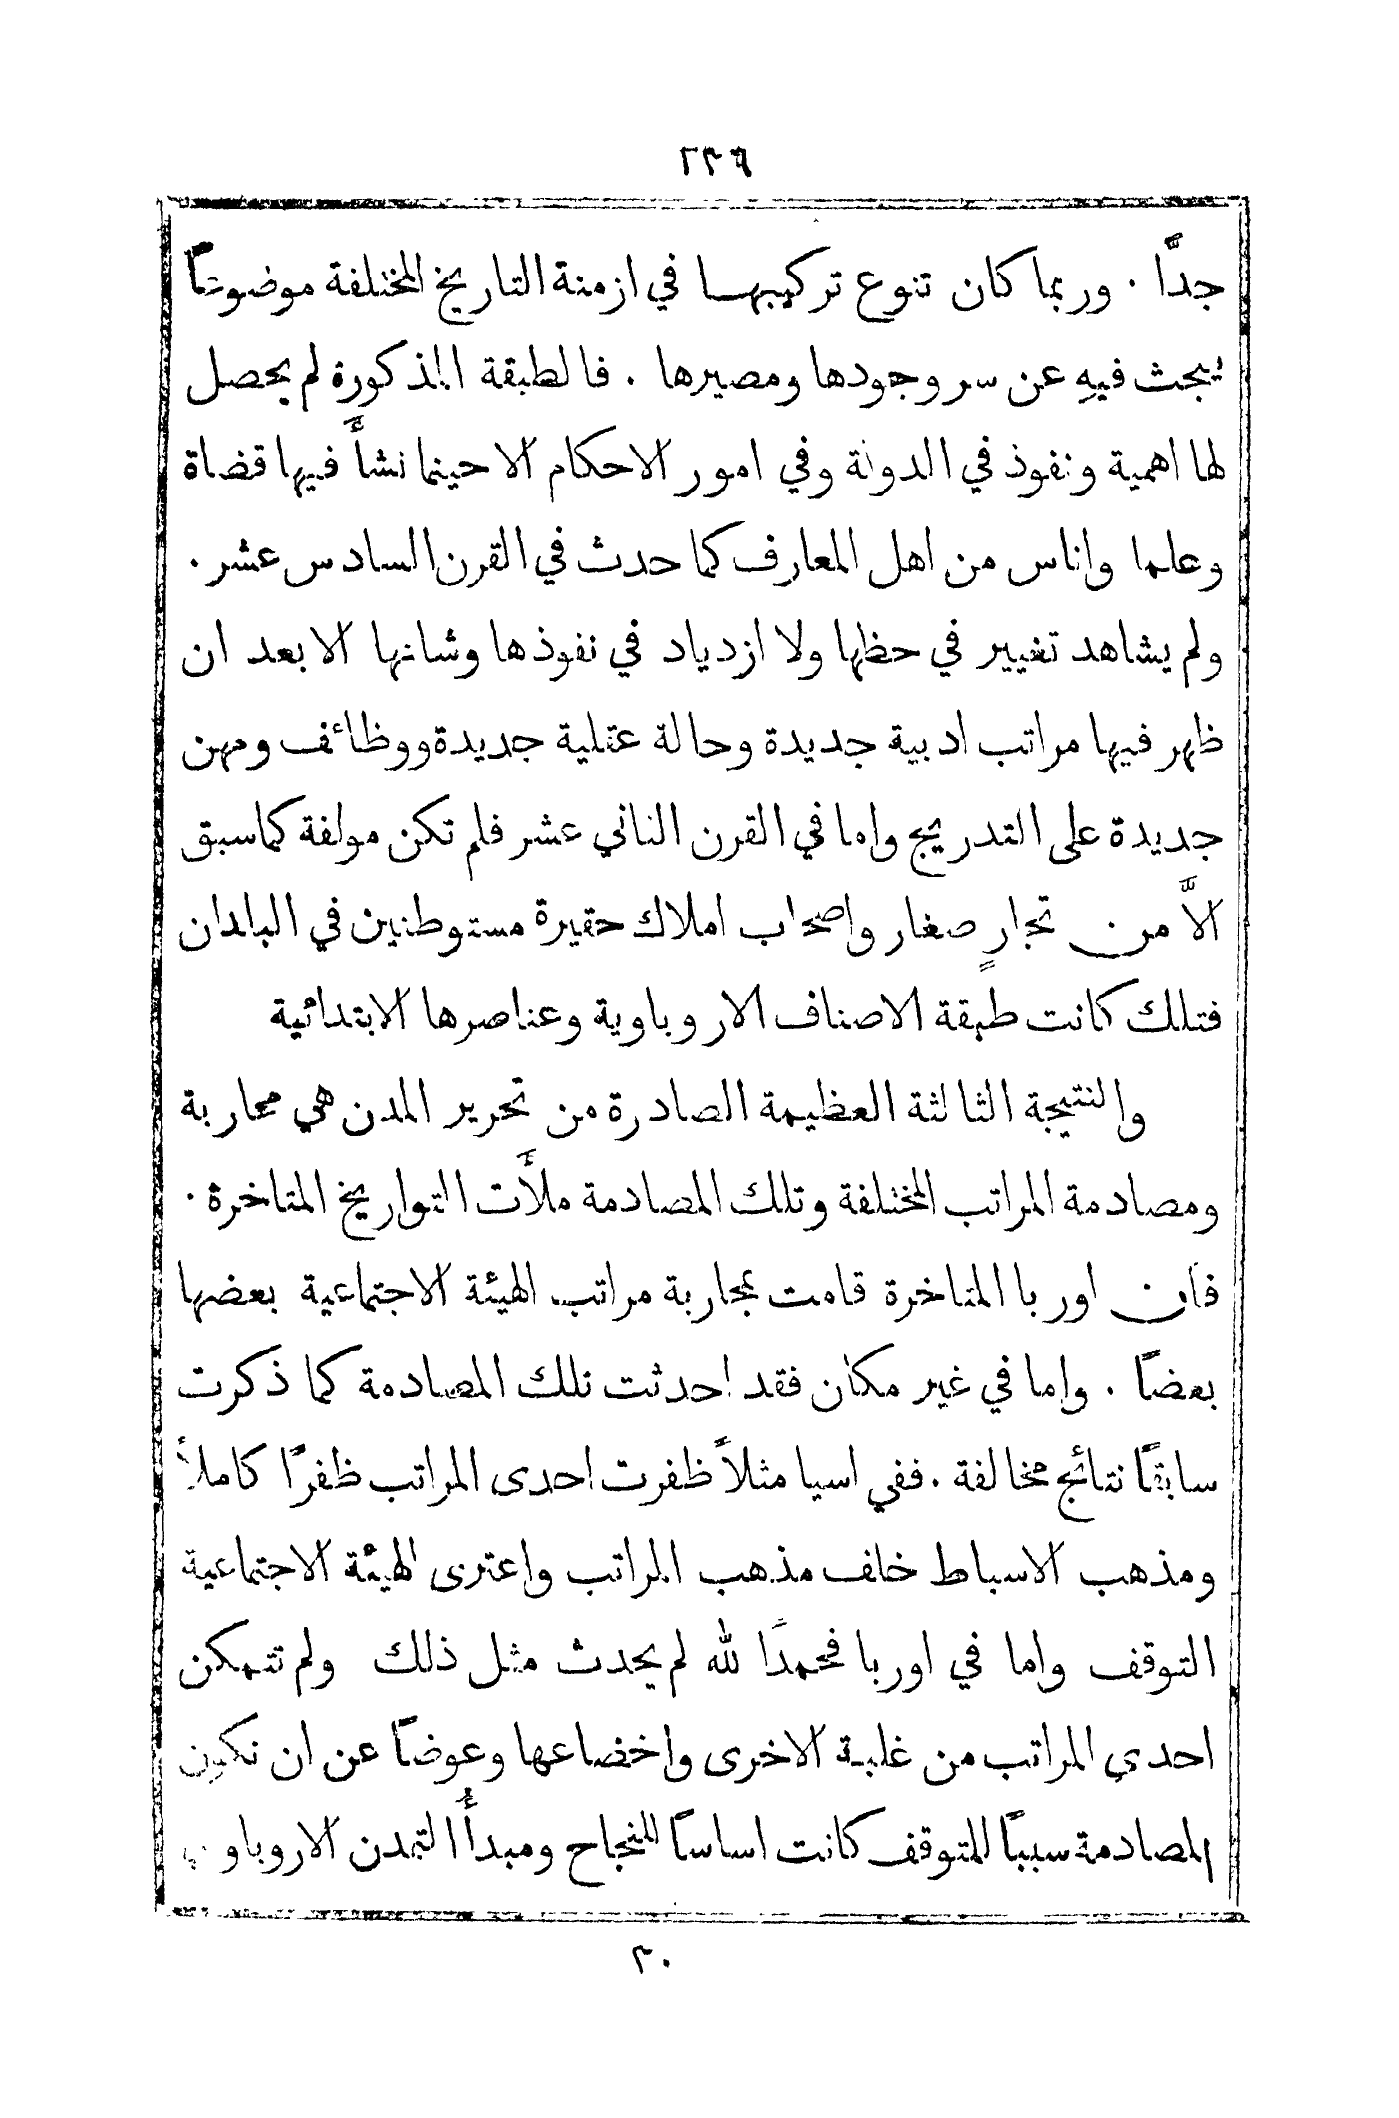 ٢٣٦
جدًّا . وربما كان تنوع تركيبها في ازمنة التاريخ المختلفة موضوعًا
يبحث فيهِ عن سر وجودها ومصيرها . فالطبقة المذكورة لم يحصل
لها اهمية ونفوذ في الدولة وفي امور الاحكام الا حينما نشأَ فيها قضاة
وعلما واناس من اهل المعارف كما حدث في القرن السادس عشر .
ولم يشاهد تغيير في حظها ولا ازدياد في نفوذها وشانها الا بعد ان
ظهر فيها مراتب ادبية جديدة وحالة عقلية جديدة ووظائف ومهن
جديدة على التدريج واما في القرن الثاني عشر فلم تكن مولفة كما سبق
الاَّ من تجارٍ صغار واصحاب املاك حقيرة مستوطنين في البلدان
فتلك كانت طبقة الاصناف الاروباوية وعناصرها الابتدائية
والنتيجة الثالثة العظيمة الصادرة من تحرير المدن هي محاربة
ومصادمة المراتب المختلفة وتلك المصادمة ملأَت التواريخ المتاخرة .
فان اوربا المتاخرة قامت بمحاربة مراتب الهيئة الاجتماعية بعضها
بعضًا . واما في غير مكان فقد احدثت تلك المصادمة كما ذكرت
سابقًا نتائج مخالفة . ففي اسيا مثلاً ظفرت احدى المراتب ظفرًا كاملاً
ومذهب الاسباط خلف مذهب المراتب واعترى الهيئة الاجتماعية
التوقف واما في اوربا فحمدًا لله لم يحدث مثل ذلك ولم تتمكن
احدي المراتب من غلبة الاخرى واخضاعها وعوضًا عن ان تكون
المصادمة سببًا للتوقف كانت اساسًا للنجاح ومبدأَ التمدن الاروباوي
٣٠